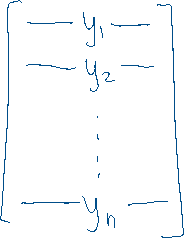 [ — y₁ —
— y₂ —
⋮
— yₙ — ]